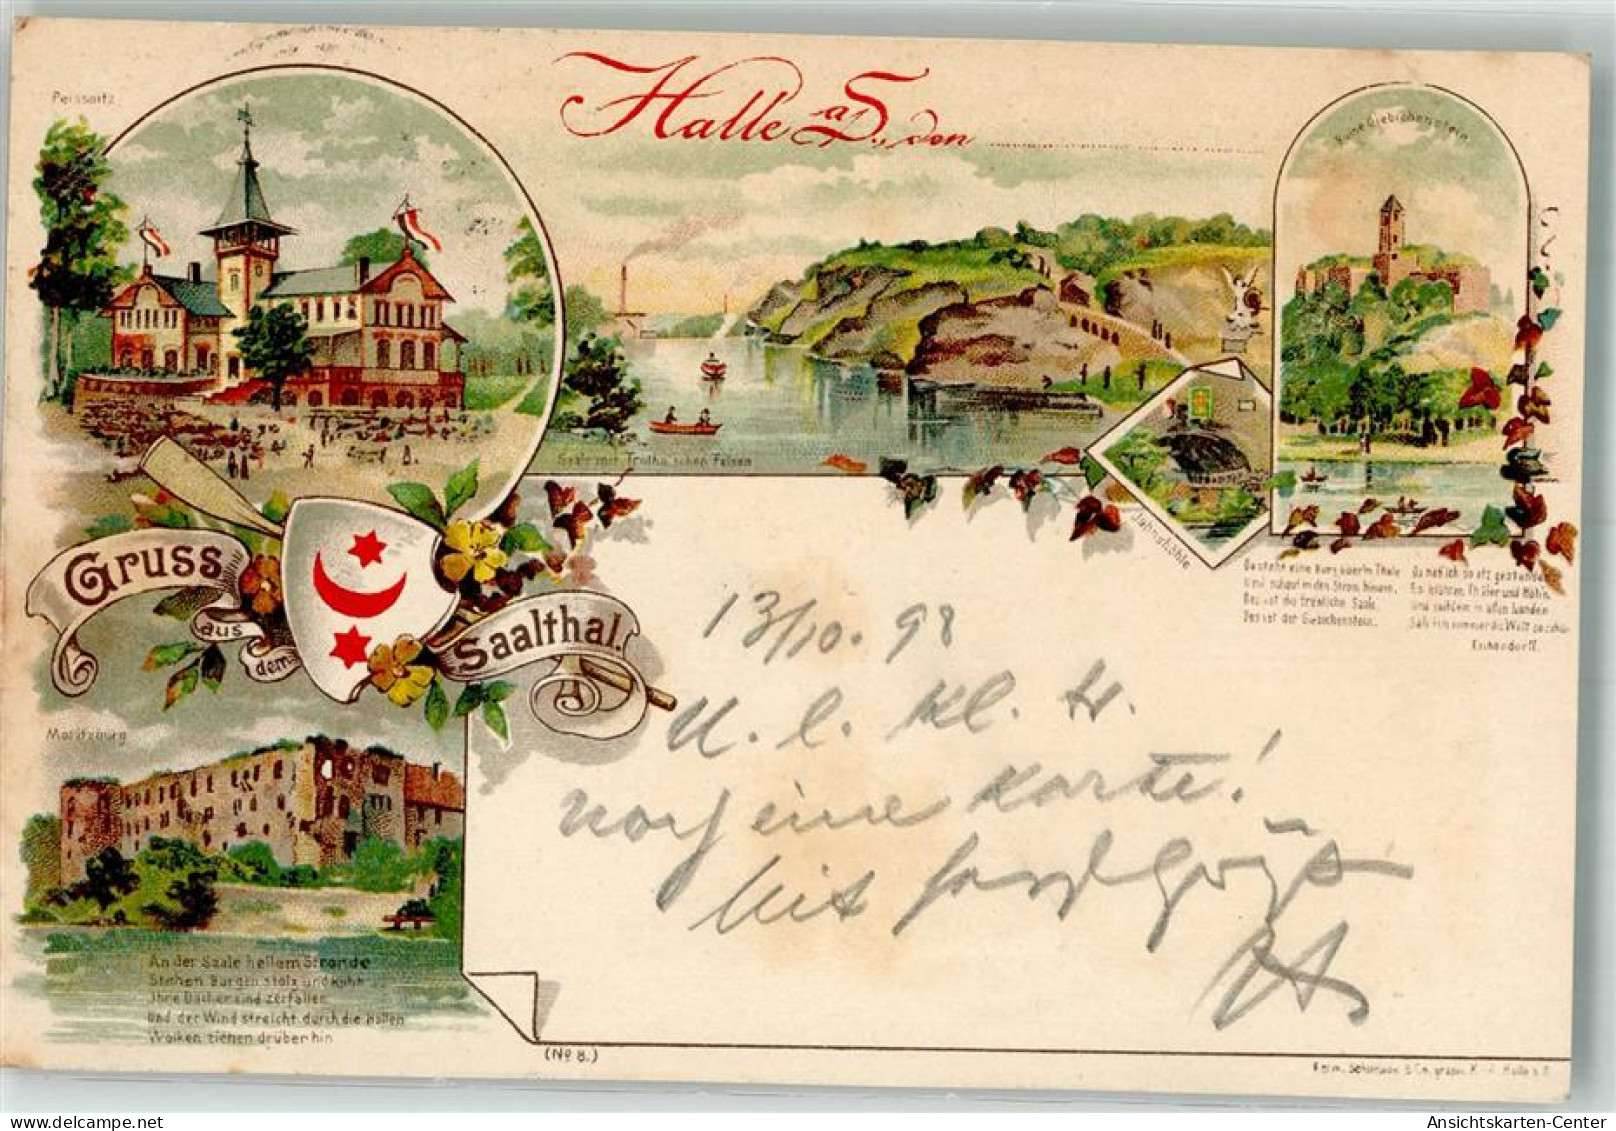 Halle a/S., den
Peissnitz
Ruine Giebichenstein
Saale mit Trotha'schen Felsen
Jahnshöhle
Gruss
aus
dem
Saalthal.
Da steht eine Burg über'm Thale
Und schaut in den Strom hinein,
Das ist die fröhliche Saale,
Das ist der Giebichenstein.
Da hab ich so oft gestanden
Es blühten Thäler und Höh'n
Und seitdem in allen Landen
Sah ich nimmer die Welt so schön
Eichendorff.
13/10. 98
U. l. kl. W.
Noch eine Karte!
Mit
Moritzburg
An der Saale hellem Strande
Stehen Burgen stolz und kühn
Ihre Dächer sind zerfallen
Und der Wind streicht durch die Hallen
Wolken ziehen drüber hin
(No 8.)
Halle a. S.
Ansichtskarten-Center